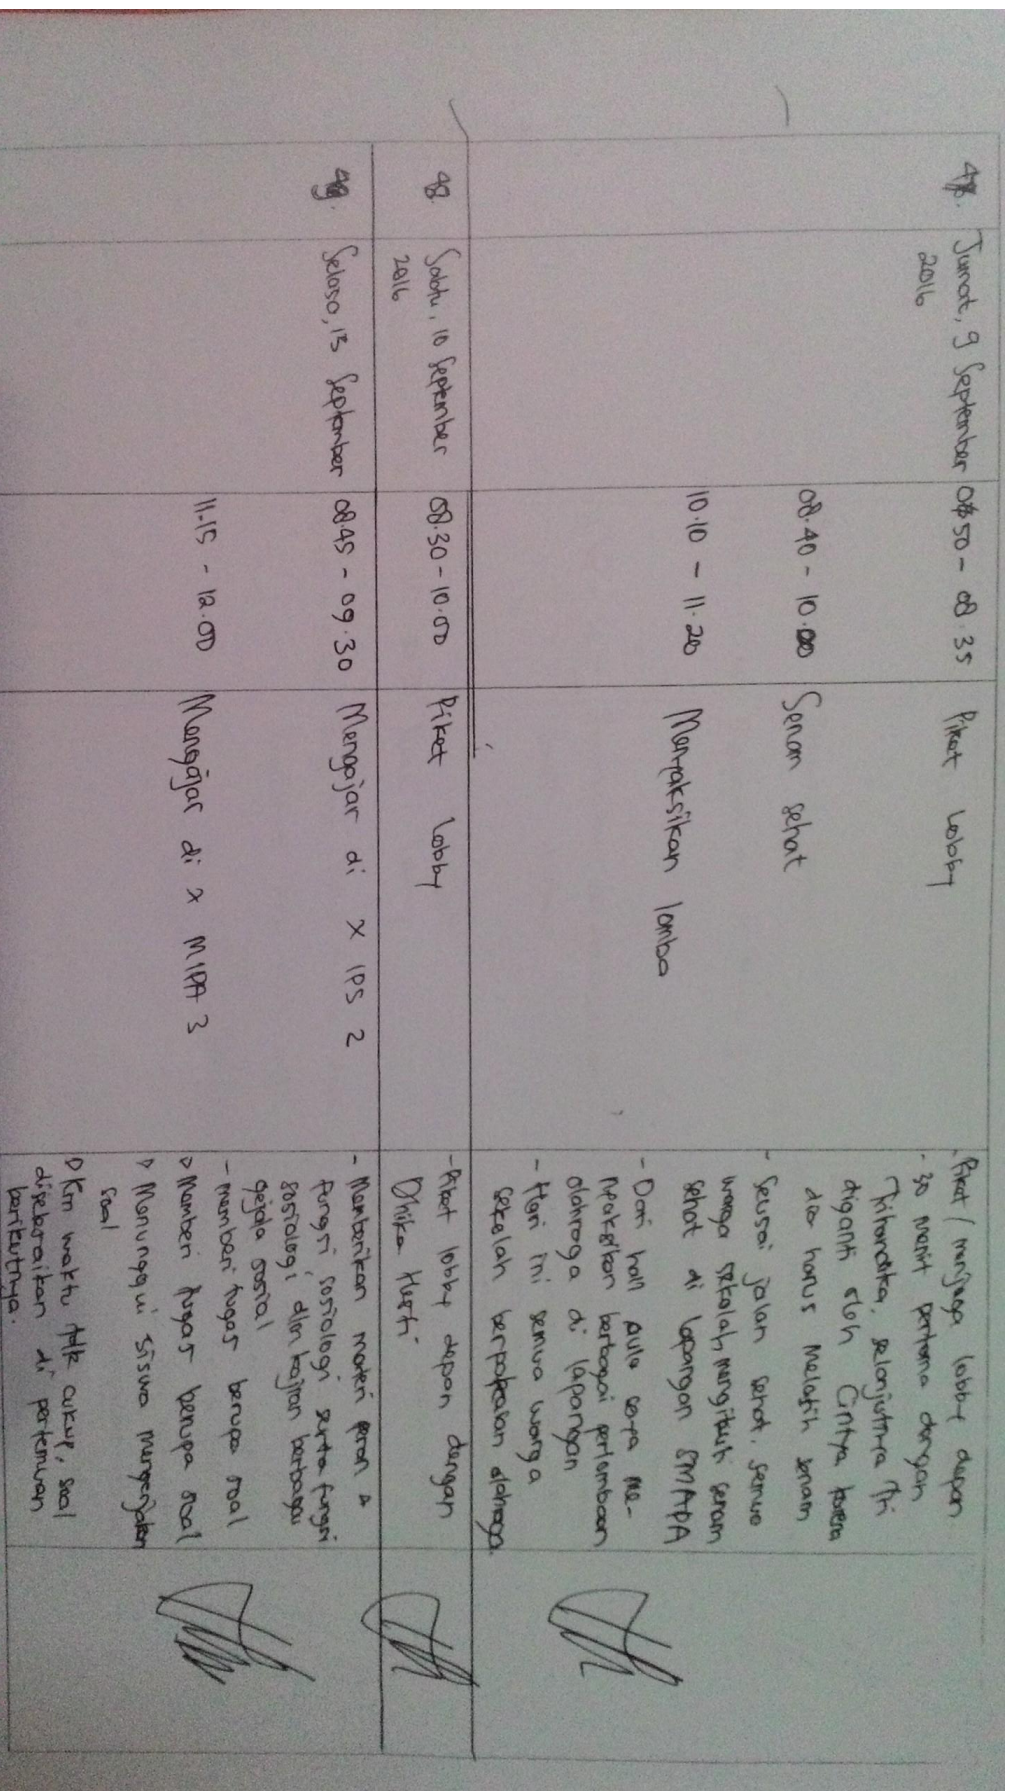 47.
Jumat, 9 September
2016
0750 - 08.35
Piket Lobby
- Piket / menjaga lobby depan
- 30 menit pertama dengan
Trihandika, selanjutnya Tri
diganti oleh Cintya karena
dia harus melatih senam
08.40 - 10.00
Senam sehat
- Seusai jalan sehat, semua
warga sekolah mengikuti senam
sehat di lapangan SMAPA
10.10 - 11.20
Menyaksikan lomba
- Dari hall pula saya me-
nyaksikan berbagai perlombaan
olahraga di lapangan
- Hari ini semua warga
sekolah berpakaian olahraga.
48.
Sabtu, 10 September
2016
08.30 - 10.00
Piket Lobby
- Piket lobby depan dengan
Dhika Hesti
49.
Selasa, 13 September
08.45 - 09.30
Mengajar di X IPS 2
- Memberikan materi peran &
fungsi sosiologi serta fungsi
sosiologi dlm kajian berbagai
gejala sosial
- memberi tugas berupa soal
11.15 - 12.00
Mengajar di X MIPA 3
> Memberi tugas berupa soal
> Menunggui siswa mengerjakan
soal
> Krn waktu tdk cukup, soal
diselesaikan di pertemuan
berikutnya.